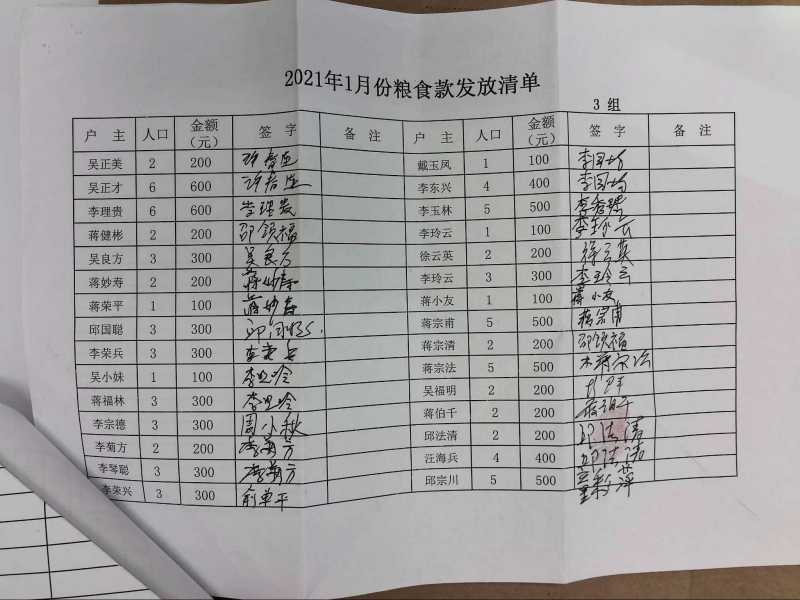 2021年1月份粮食款发放清单
3 组
户 主 人口 金额（元） 签 字 备 注 户 主 人口 金额（元） 签 字 备 注
吴正美 2 200 戴玉凤 1 100 李国均
吴正才 6 600 李东兴 4 400 李国均
李理贵 6 600 李理贵 李玉林 5 500
蒋健彬 2 200 邵领福 李玲云 1 100 李玲云
吴良方 3 300 吴良方 徐云英 2 200 徐云英
蒋妙寿 2 200 蒋妙寿 李玲云 3 300 李玲云
蒋荣平 1 100 蒋妙寿 蒋小友 1 100 蒋小友
邱国聪 3 300 邱国聪 蒋宗甫 5 500 蒋宗甫
李荣兵 3 300 李荣兵 蒋宗清 2 200 邵领福
吴小妹 1 100 蒋宗法 5 500
蒋福林 3 300 吴福明 2 200
李宗德 3 300 周小秋 蒋伯千 2 200 蒋伯千
李菊方 2 200 李菊方 邱法清 2 200 邱法清
李琴聪 3 300 李菊方 汪海兵 4 400 邱法清
李荣兴 3 300 俞单平 邱宗川 5 500